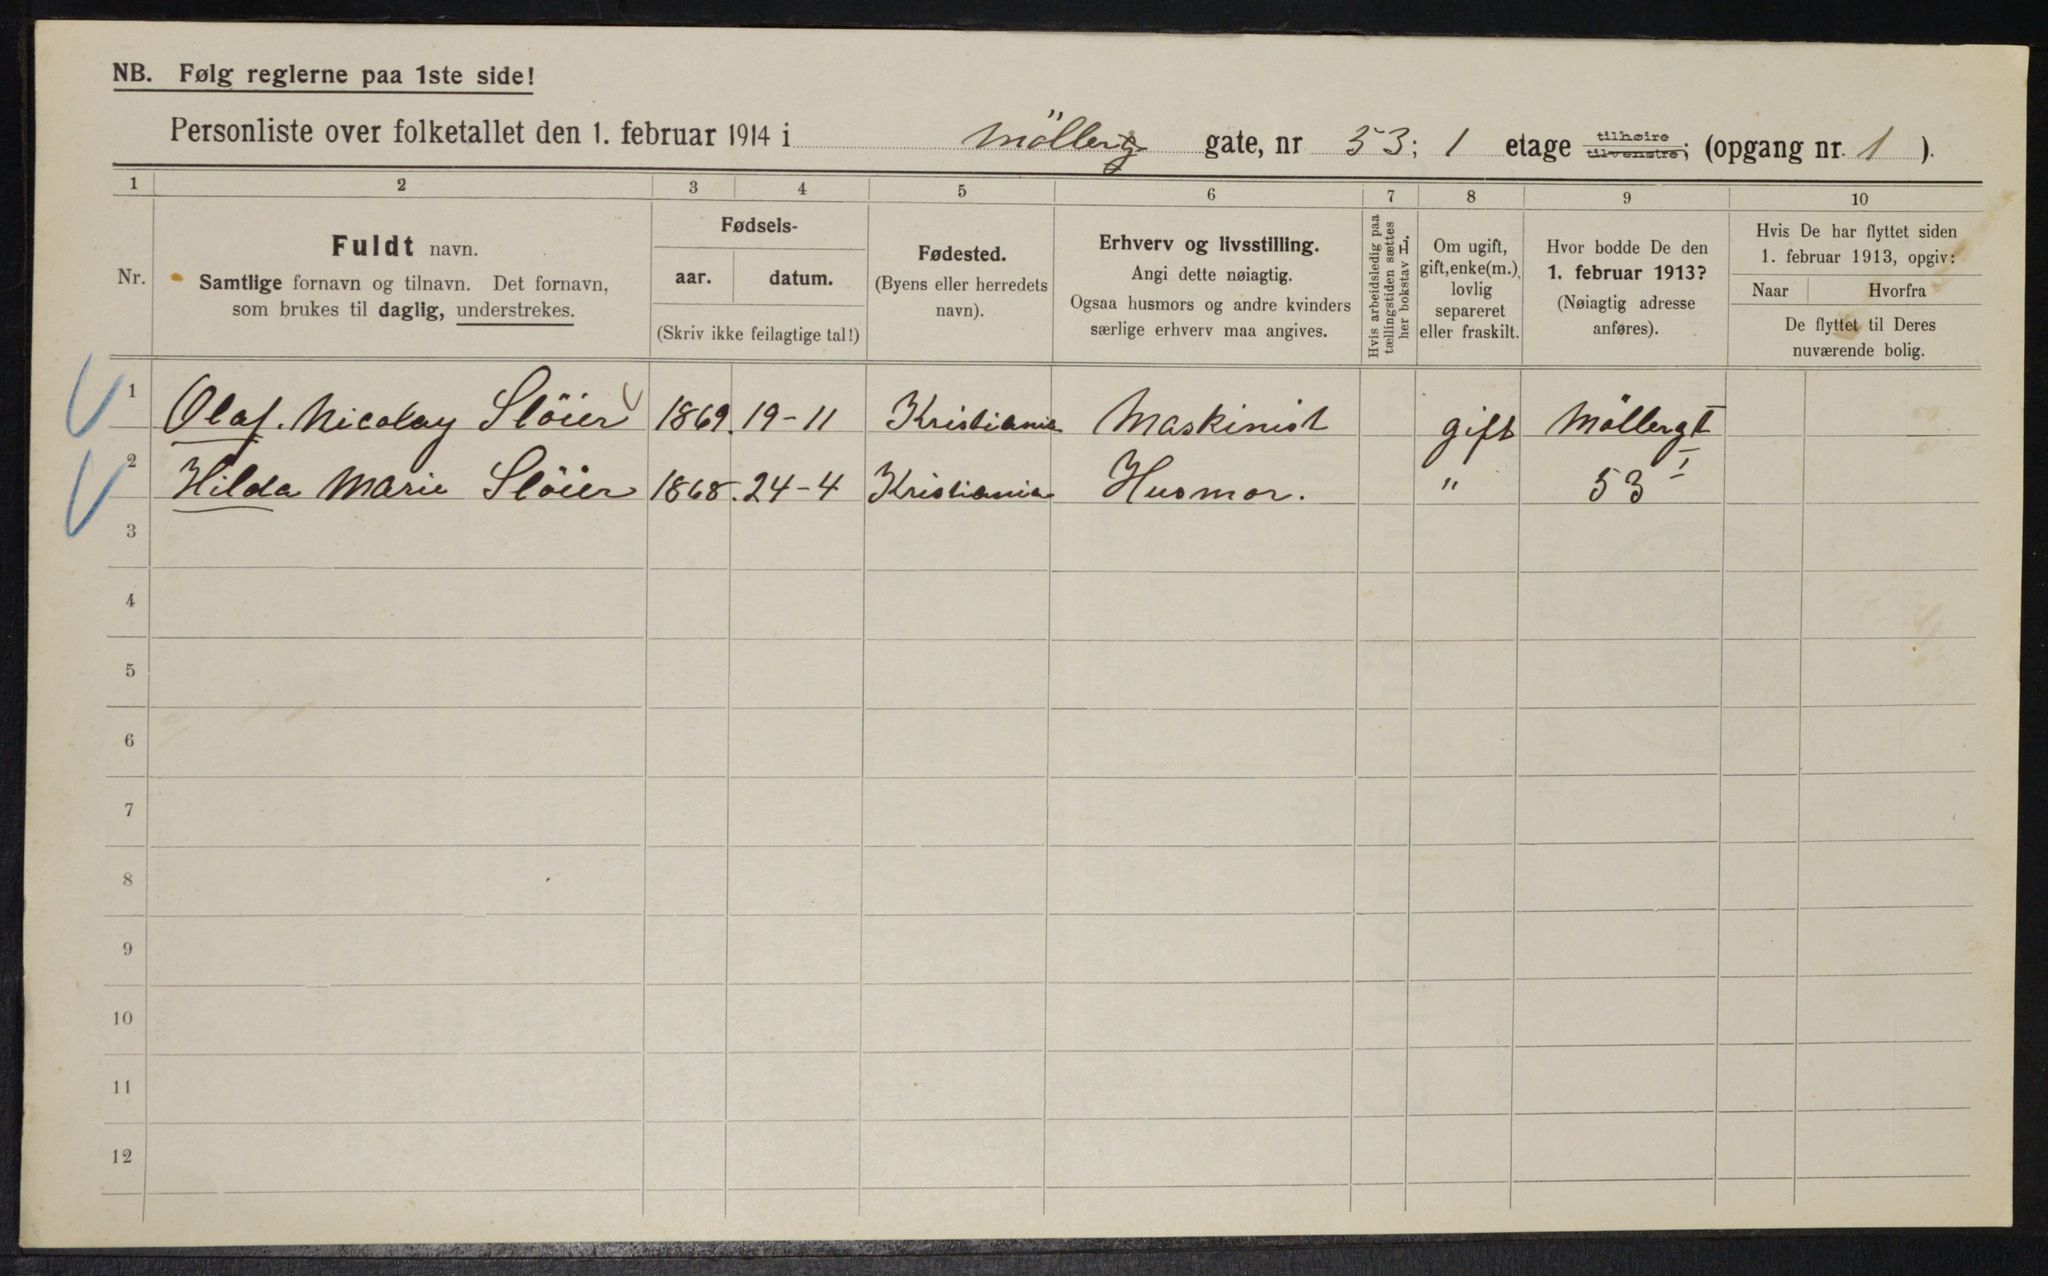 NB. Følg reglerne paa 1ste side!
Personliste over folketallet den 1. februar 1914 i Möllerg gate, nr 53; 1 etage tilhøire tilvenstre; (opgang nr. 1).
1 2 3 4 5 6 7 8 9 10
Nr.
Fuldt navn.
Samtlige fornavn og tilnavn. Det fornavn,
som brukes til daglig, understrekes.
Fødsels-
aar. datum.
(Skriv ikke feilagtige tal!)
Fødested.
(Byens eller herredets
navn).
Erhverv og livsstilling.
Angi dette nøiagtig.
Ogsaa husmors og andre kvinders
særlige erhverv maa angives.
Hvis arbeidsledig paa
tællingstiden sættes
her bokstav L.
Om ugift,
gift, enke(m.),
lovlig
separeret
eller fraskilt.
Hvor bodde De den
1. februar 1913?
(Nøiagtig adresse
anføres).
Hvis De har flyttet siden
1. februar 1913, opgiv:
Naar Hvorfra
De flyttet til Deres
nuværende bolig.
1 Olaf. Nicolay Slöier 1869. 19-11 Kristiania Maskinist gift Möllergt
2 Hilda Marie Slöier 1868. 24-4 Kristiania Husmor. " 53 I
3
4
5
6
7
8
9
10
11
12